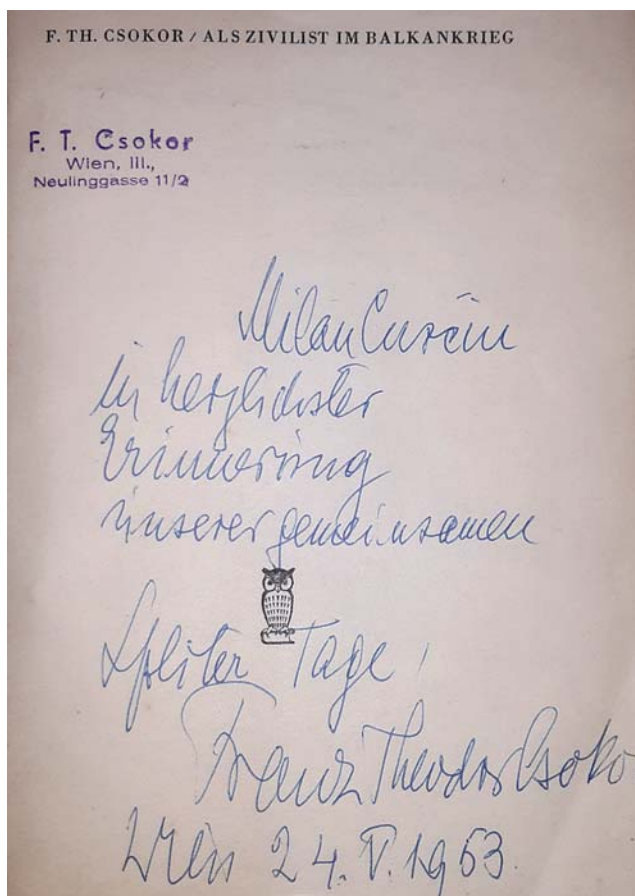 F. TH. CSOKOR / ALS ZIVILIST IM BALKANKRIEG
F. T. Csokor
Wien, III.,
Neulinggasse 11/2
Milan Curčin
in herzlichster
Erinnerung
unserer gemeinsamen
Spliter Tage!
Franz Theodor Csokor
Wien 24. V. 1953.